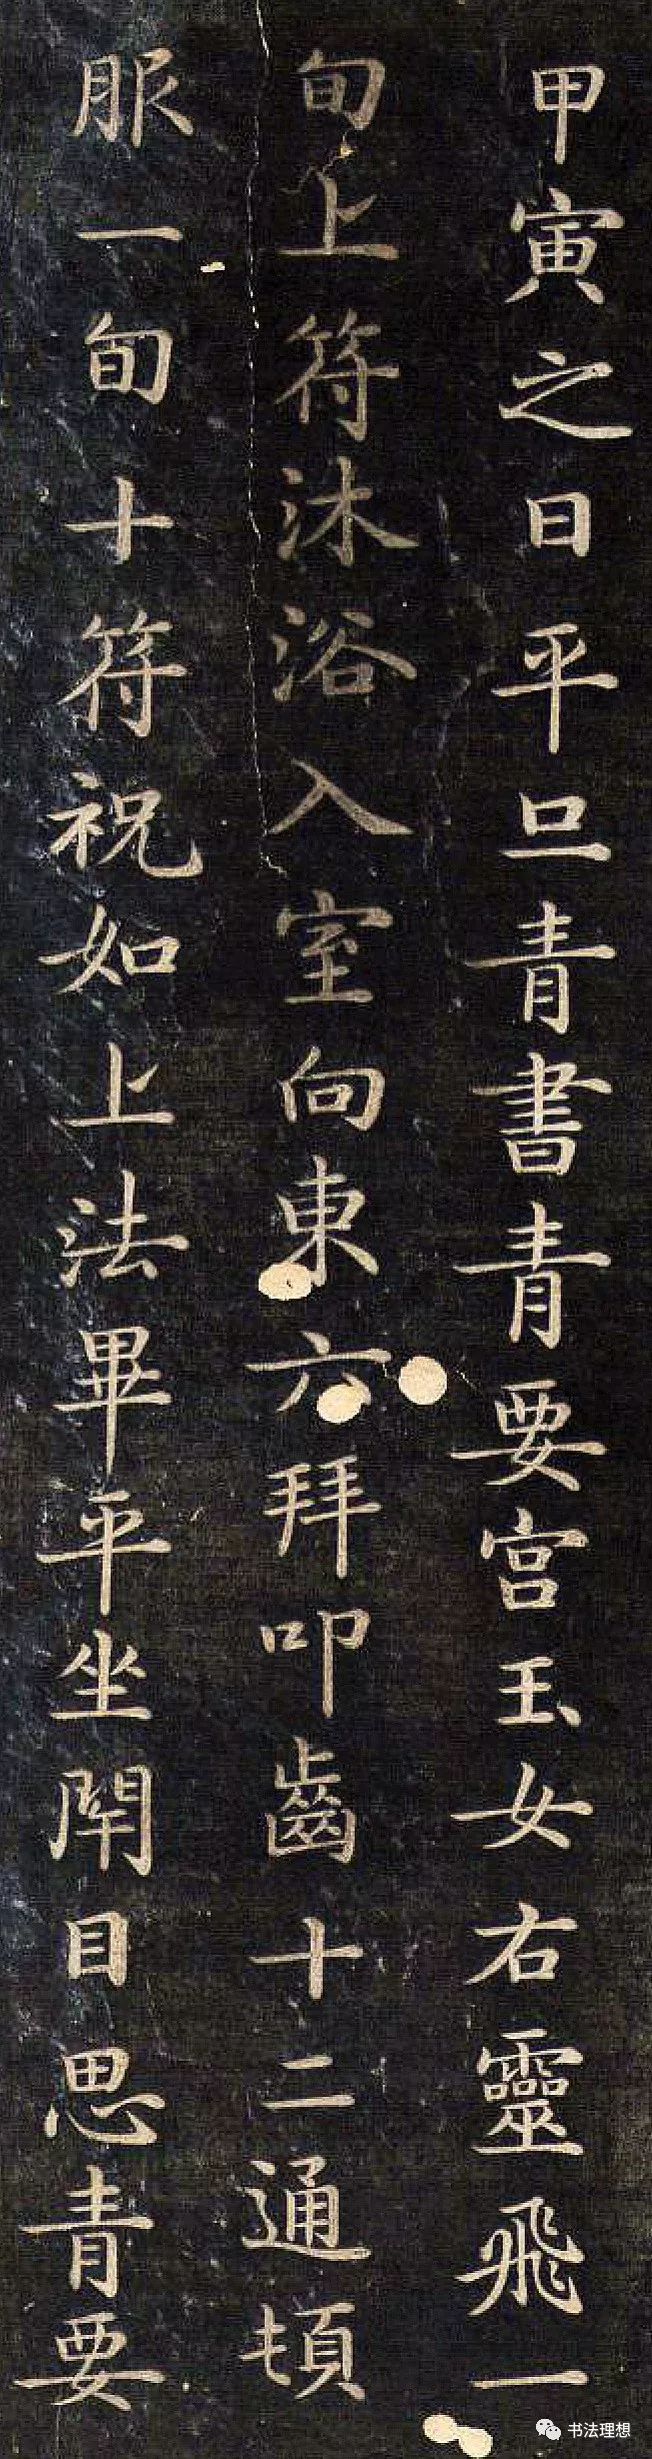 甲寅之日平旦青書青要宮玉女右靈飛一
旬上符沐浴入室向東六拜叩齒十二通頓
服一旬十符祝如上法畢平坐閉目思青要
书法理想